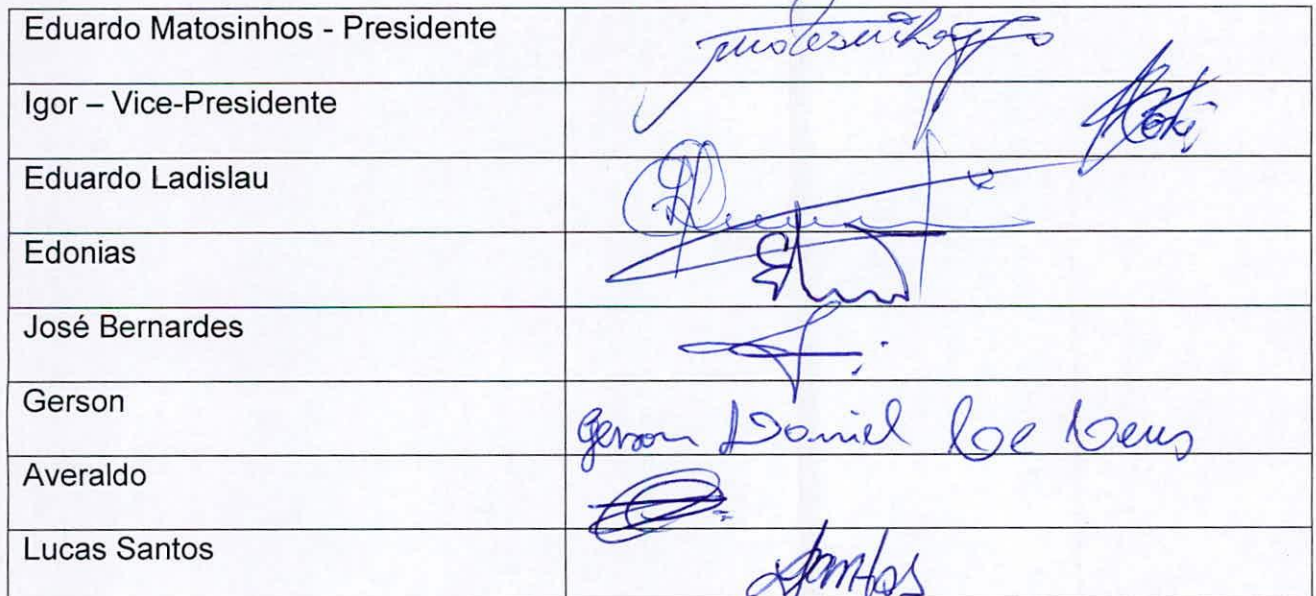 Eduardo Matosinhos - Presidente
Igor – Vice-Presidente
Eduardo Ladislau
Edonias
José Bernardes
Gerson
Gerson Daniel De Deus
Averaldo
Lucas Santos
Santos